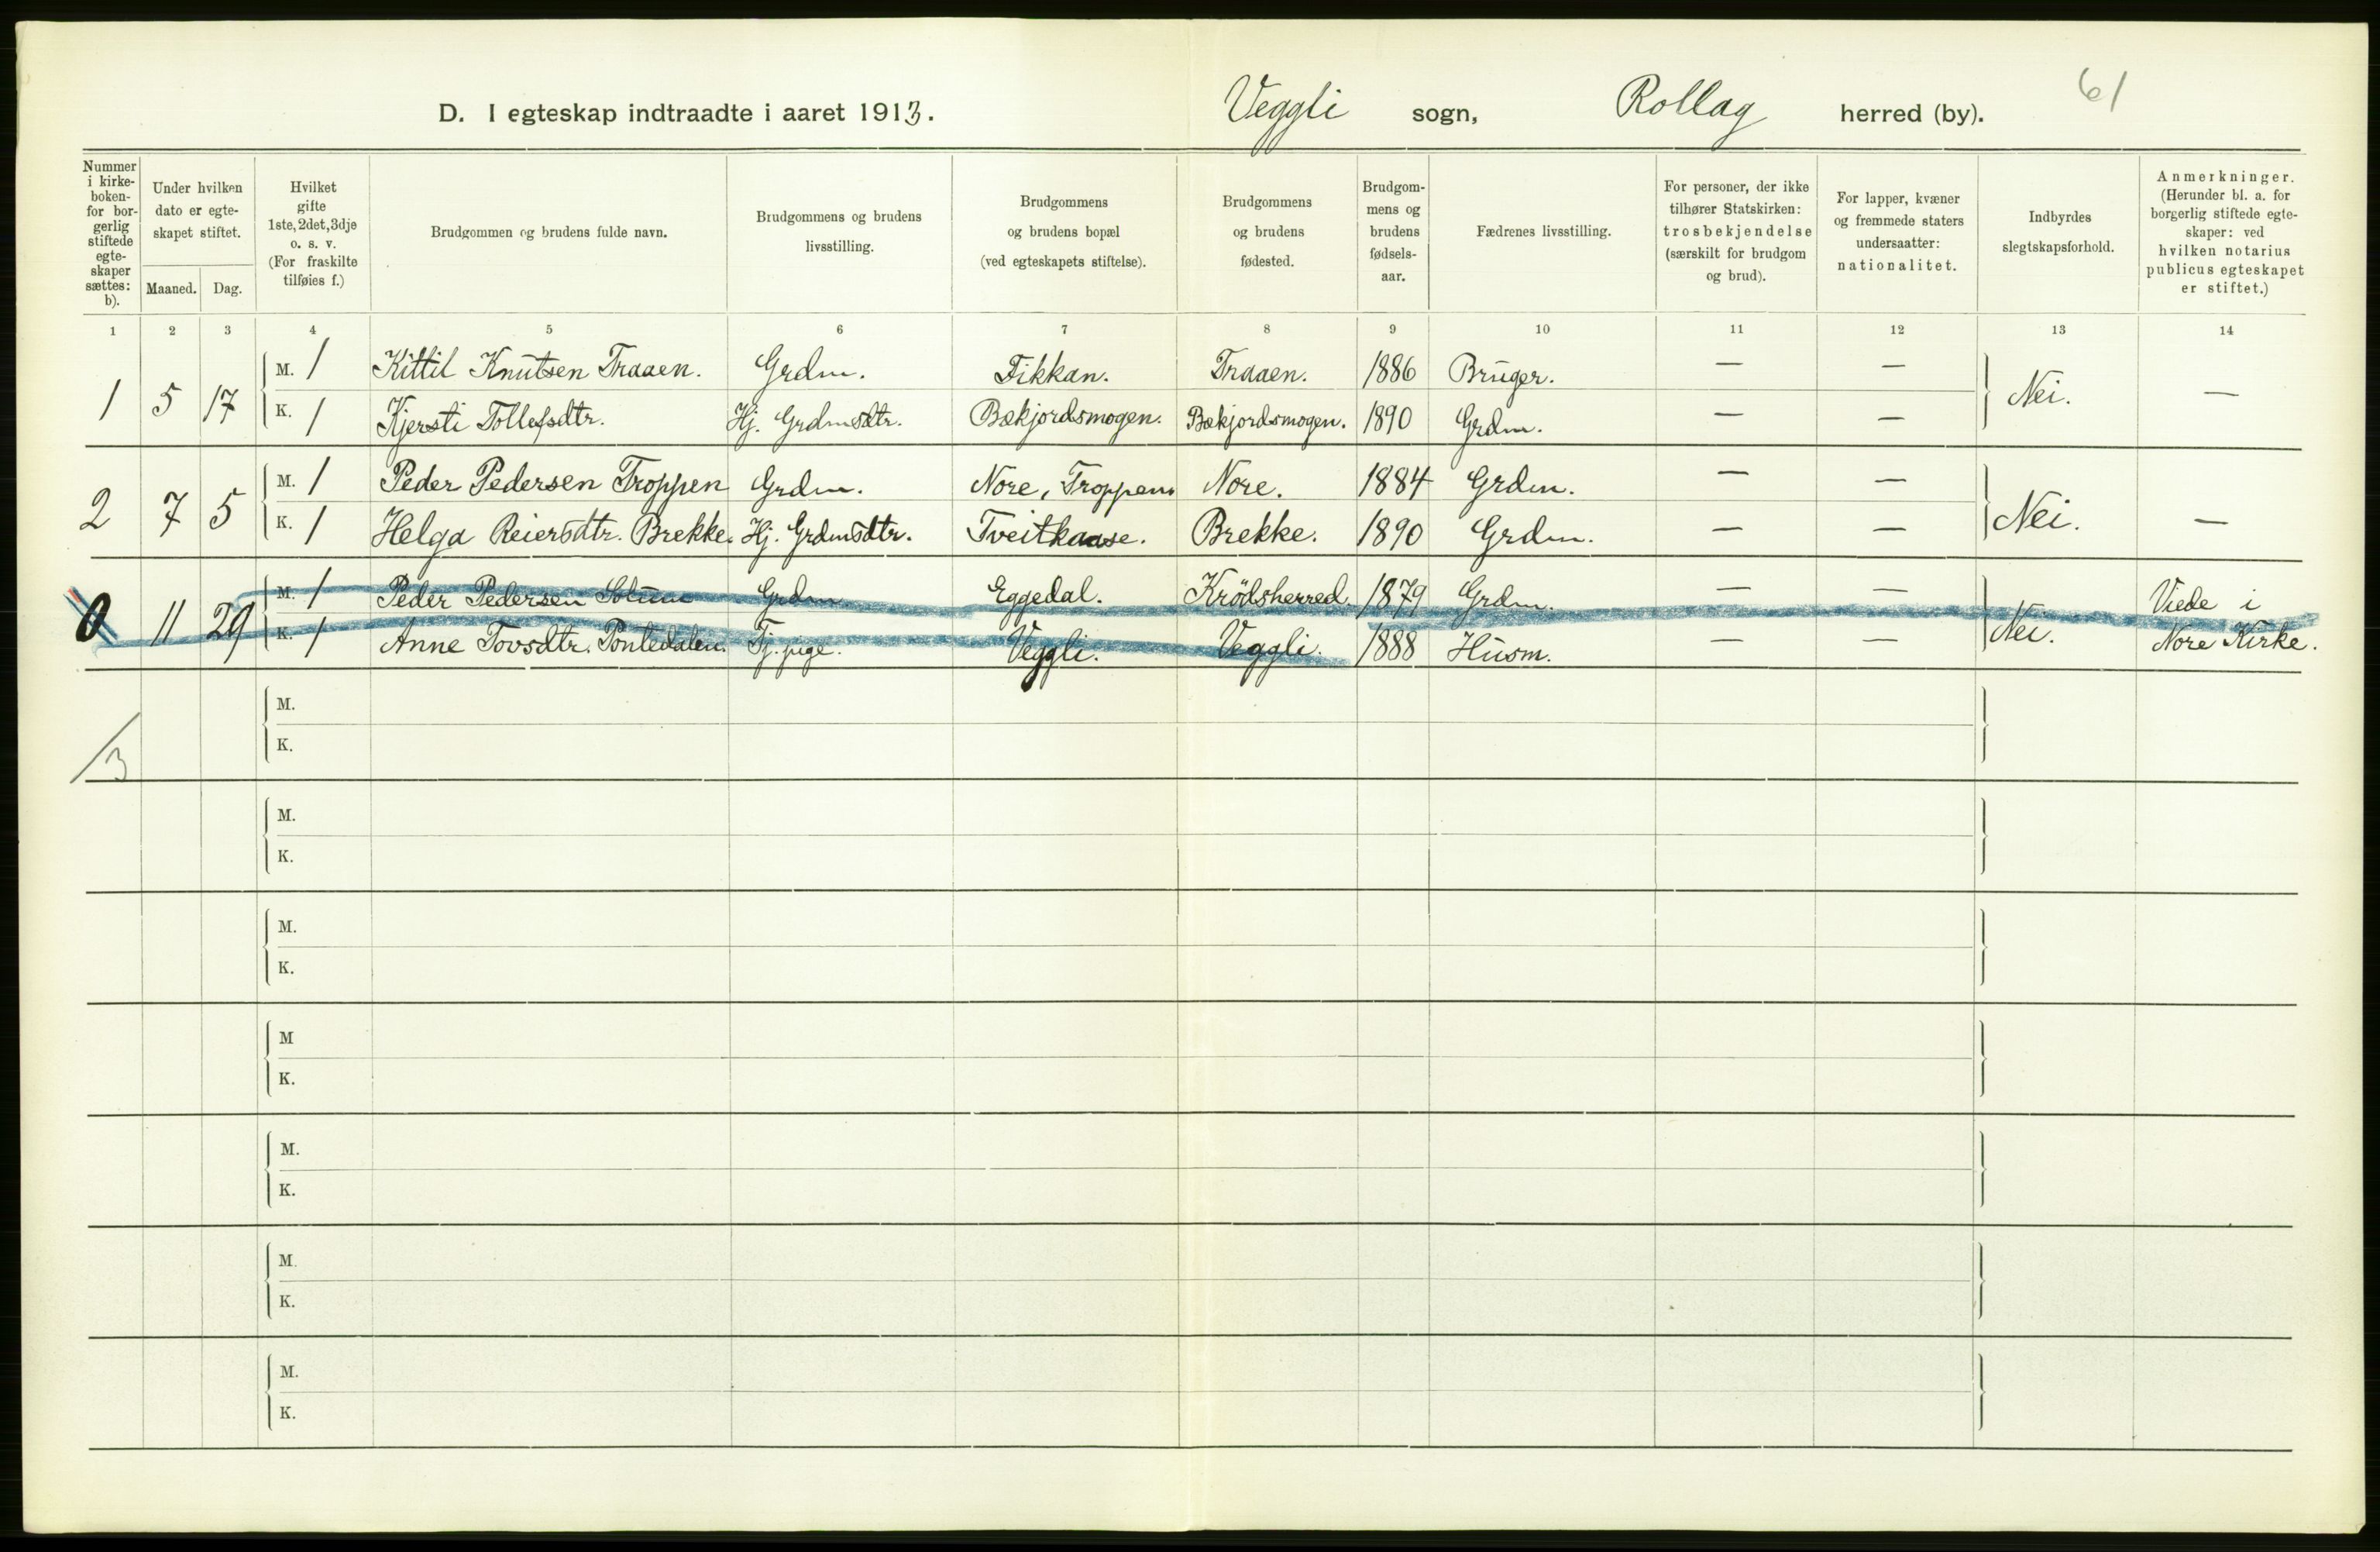 61
D. I egteskap indtraadte i aaret 1913. Veggli sogn, Rollag herred (by).
Nummer
i kirke-
boken-
for bor-
gerlig
stiftede
egte-
skaper
sættes:
b).
Under hvilken
dato er egte-
skapet stiftet.
Maaned. Dag.
Hvilket
gifte
1ste, 2det, 3dje
o. s. v.
(For fraskilte
tilføies f.)
Brudgommen og brudens fulde navn.
Brudgommens og brudens
livsstilling.
Brudgommens
og brudens bopæl
(ved egteskapets stiftelse).
Brudgommens
og brudens
fødested.
Brudgom-
mens og
brudens
fødsels-
aar.
Fædrenes livsstilling.
For personer, der ikke
tilhører Statskirken:
trosbekjendelse
(særskilt for brudgom
og brud).
For lapper, kvæner
og fremmede staters
undersaatter:
nationalitet.
Indbyrdes
slegtskapsforhold.
Anmerkninger.
(Herunder bl. a. for
borgerlig stiftede egte-
skaper: ved
hvilken notarius
publicus egteskapet
er stiftet.)
1 2 3 4 5 6 7 8 9 10 11 12 13 14
M. 1 Kittil Knutsen Traaen. Grdm. Fikkan. Traaen. 1886 Bruger. — —
1 5 17 Nei. —
K. 1 Kjersti Tollefsdtr. Hj. Grdmsdtr. Bækjordsmogen. Bækjordsmogen. 1890 Grdm. — —
M. 1 Peder Pedersen Troppen Grdm. Nore, Troppen Nore. 1884 Grdm. — —
2 7 5 Nei. —
K. 1 Helga Reiersdtr. Brekke. Hj. Grdmsdtr. Tveitkaase. Brekke. 1890 Grdm. — —
M. 1 Peder Pedersen Solum Grdm. Eggedal. Krödsherred. 1879 Grdm. — — Viede i
0 11 29 Nei.
K. 1 Anne Tovsdtr. Pontedalen. Tj. pige. Veggli. Veggli. 1888 Husm. — — Nore Kirke.
M.
K.
3
M.
K.
M.
K.
M
K.
M.
K.
M.
K.
M.
K.